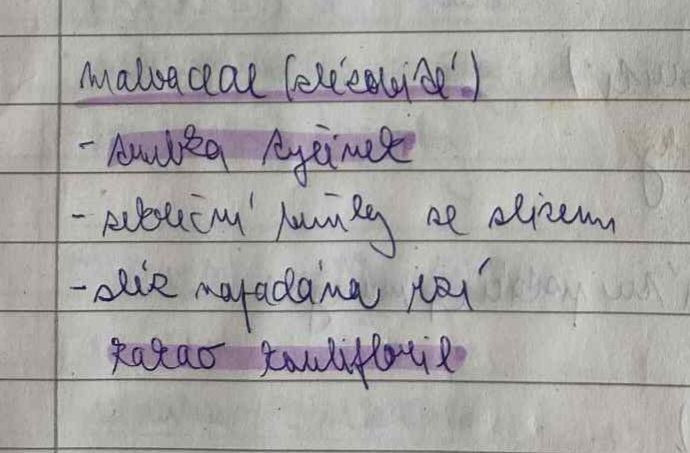 malvaceae (slézovité)
- trubka tyčinek
- sekreční buňky se slizem
- sléz napadána rzí
kakao kauliflorie